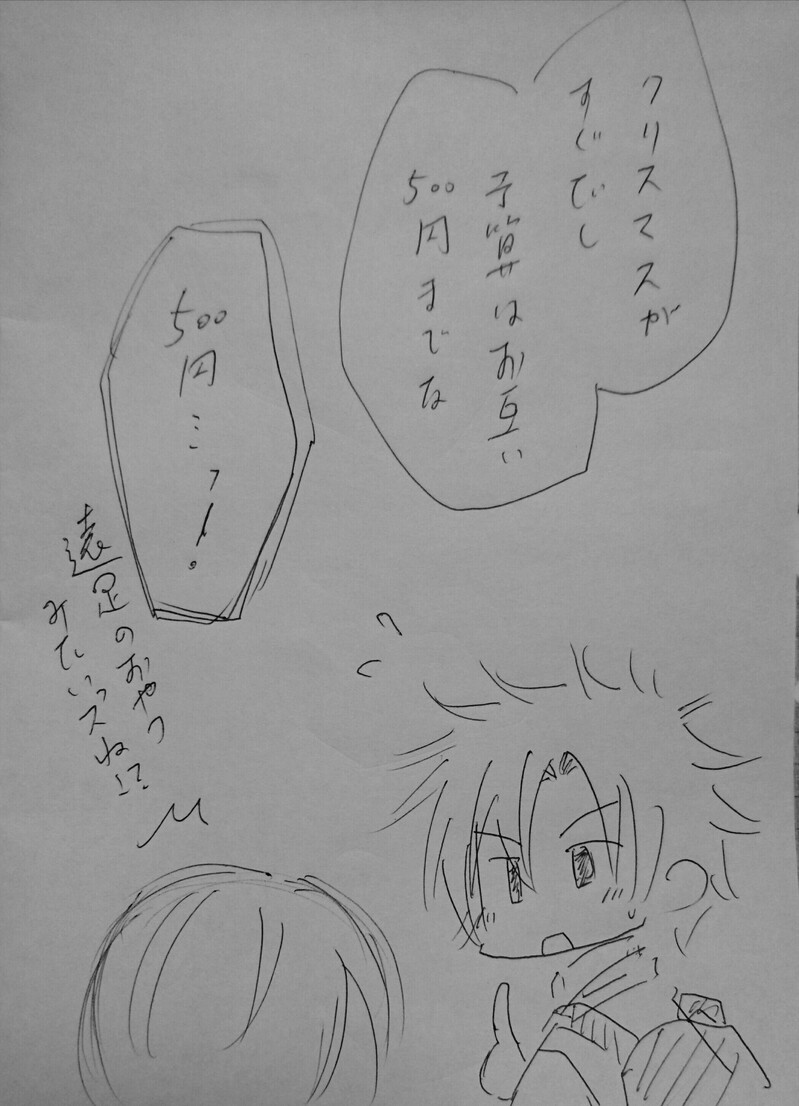 クリスマスが
すぐだし
予算はお互い
500円までな
500円ミつ!
遠足のおやつ
みたいっスね!?